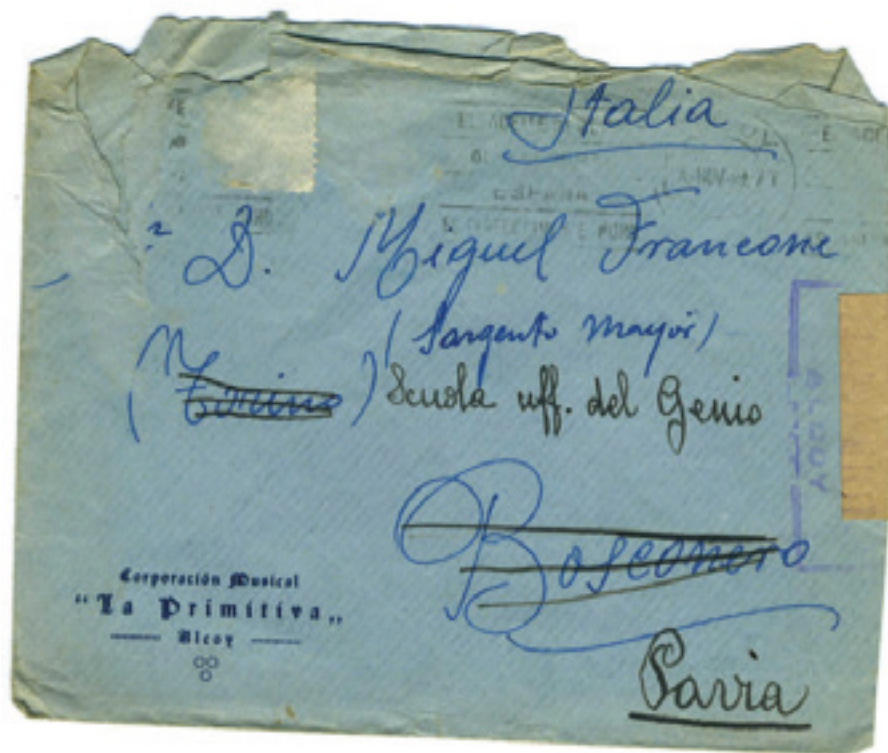 Italia
D. Miguel Francone
(Sargento Mayor)
(Torino) Scuola uff. del Genio
Bosconero
Pavia
Corporación Musical
"La Primitiva"
Alcoy
ALCOY